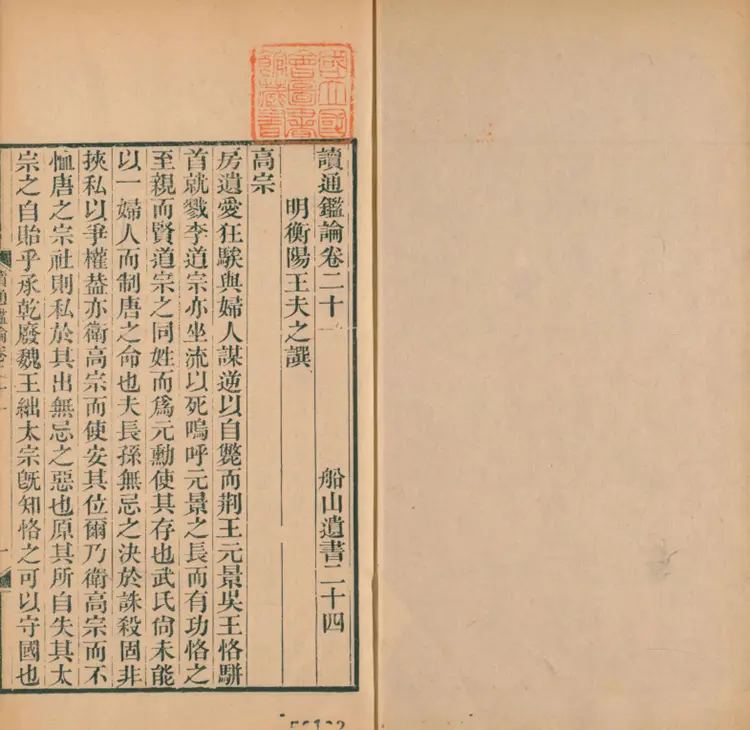 國立國
會圖書
館藏書
讀通鑑論卷二十一 船山遺書二十四
明衡陽王夫之譔
高宗
房遺愛狂騃與婦人謀逆以自斃而荆王元景吳王恪駢
首就戮李道宗亦坐流以死嗚呼元景之長而有功恪之
至親而賢道宗之同姓而爲元勳使其存也武氏尙未能
以一婦人而制唐之命也夫長孫無忌之決於誅殺固非
挾私以爭權葢亦衛高宗而使安其位爾乃衛高宗而不
恤唐之宗社則私於其出無忌之惡也原其所自失其太
宗之自貽乎承乾廢魏王絀太宗旣知恪之可以守國也
讀通鑑論卷二十一
一